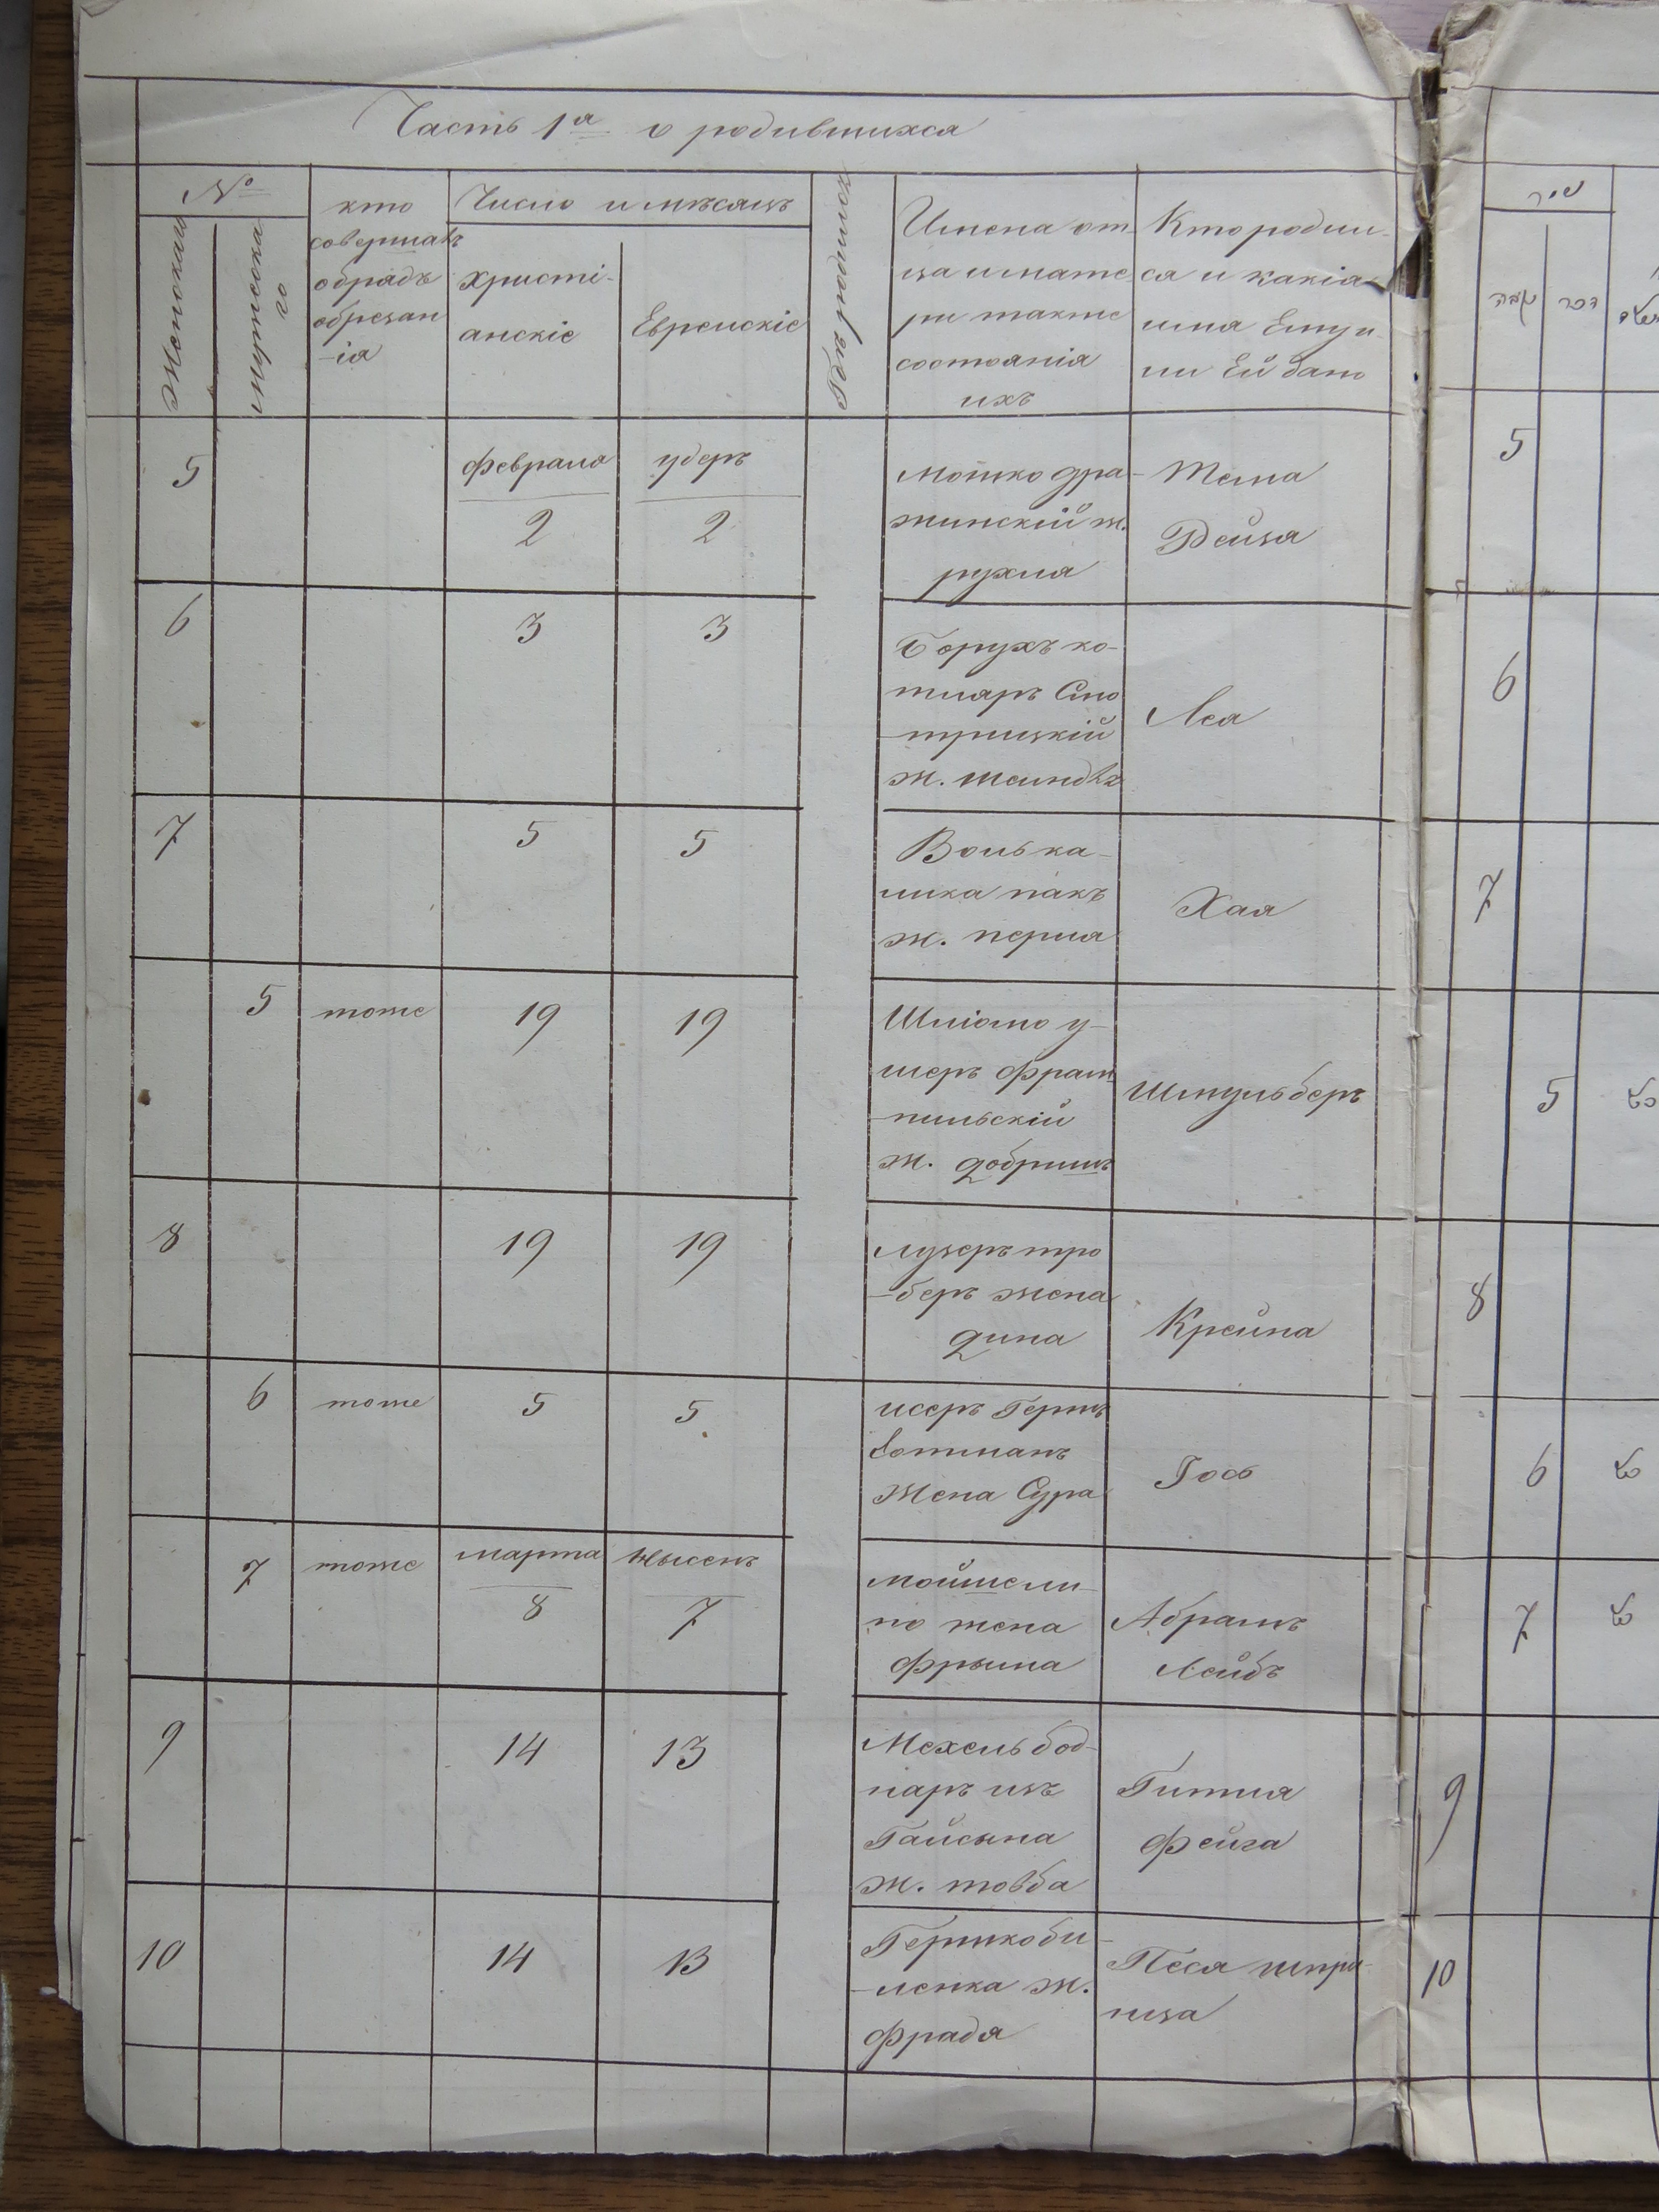 Часть 1я о родившихся
№
Женскаго
Мужеска
го
кто
совершалъ
обрядъ
обрезан
-iя
Число и мѣсяцъ
христі-
анскіе
Еврейскіе
Гдѣ родился
Имена от-
ца и мате-
ри также
состоянiя
ихъ
Кто родил-
ся и какiя
имя Ему и-
ли Ей дано
5
февраля
2
удеръ
2
Мошко дра-
жинскій ж.
рухля
Тема
Рейзя
6
3
3
Борухъ ко-
тляръ Смо
-трицкій
ж. шейндля
Лея
7
5
5
Волька-
лика пакъ
ж. перля
Хая
5
тоже
19
19
Шліомо у-
шеръ фрам
-пильскій
ж. добришъ
Шмульберъ
8
19
19
Лузеръ тро
-беръ жена
дина
Крейна
6
тоже
5
5
исеръ Гершъ
Жена Сура
7
тоже
марта
8
Нысенъ
7
мойше ли-
по жена
фрыма
Абрамъ
Лейбъ
9
14
13
Мехель бод-
наръ изъ
Гайсына
ж. товба
Гитля
фейга
10
14
13
Гершко би-
-ленка ж.
фрадя
Песя шпри-
нца
5
6
7
5
8
6
7
9
10